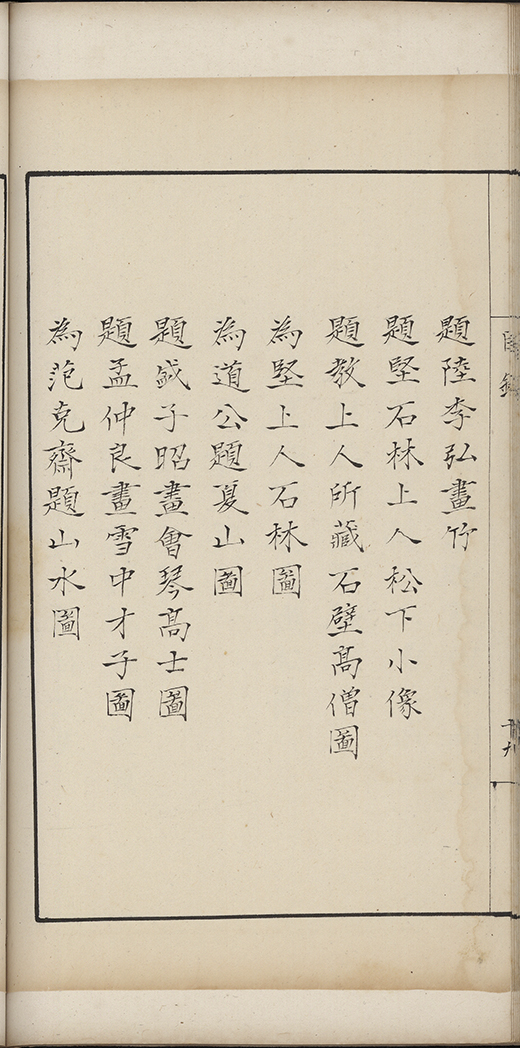 題陸李弘畫竹
題堅石林上人松下小像
題教上人所藏石壁髙僧圖
為堅上人石林圖
為道公題夏山圖
題盛子昭畫會琴髙士圖
題孟仲良畫雪中才子圖
為范克齋題山水圖
十九